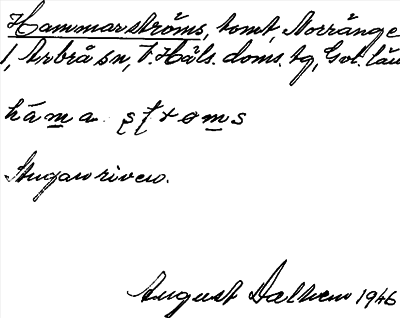 Hammarströms, tomt, Norrånge
1, Arbrå sn, V. Häls. doms. tg, Gvl. län
håma ströms
Stugan riven.
August Dalhem 1946